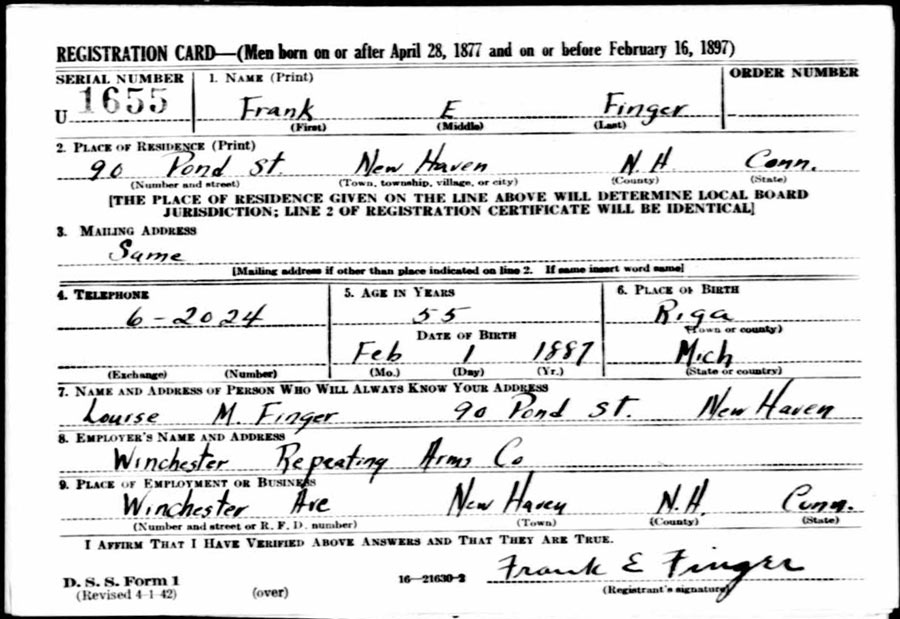 REGISTRATION CARD—(Men born on or after April 28, 1877 and on or before February 16, 1897)
SERIAL NUMBER 1. NAME (Print) ORDER NUMBER
U 1655 Frank E Finger
(First) (Middle) (Last)
2. PLACE OF RESIDENCE (Print)
90 Pond St. New Haven N.H. Conn.
(Number and street) (Town, township, village, or city) (County) (State)
[THE PLACE OF RESIDENCE GIVEN ON THE LINE ABOVE WILL DETERMINE LOCAL BOARD
JURISDICTION; LINE 2 OF REGISTRATION CERTIFICATE WILL BE IDENTICAL]
3. MAILING ADDRESS
Same
[Mailing address if other than place indicated on line 2. If same insert word same]
4. TELEPHONE 5. AGE IN YEARS 6. PLACE OF BIRTH
6-2024 55 Riga
DATE OF BIRTH (Town or county)
Feb 1 1887 Mich
(Exchange) (Number) (Mo.) (Day) (Yr.) (State or country)
7. NAME AND ADDRESS OF PERSON WHO WILL ALWAYS KNOW YOUR ADDRESS
Louise M. Finger 90 Pond St. New Haven
8. EMPLOYER'S NAME AND ADDRESS
Winchester Repeating Arms Co
9. PLACE OF EMPLOYMENT OR BUSINESS
Winchester Ave New Haven N.H. Conn.
(Number and street or R. F. D. number) (Town) (County) (State)
I AFFIRM THAT I HAVE VERIFIED ABOVE ANSWERS AND THAT THEY ARE TRUE.
Frank E Finger
D. S. S. Form 1 16—21630-2
(Revised 4-1-42) (over) (Registrant's signature)